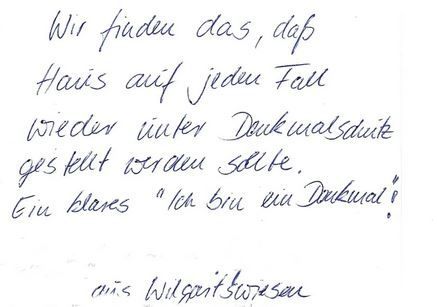 Wir finden das, daß
Haus auf jeden Fall
wieder unter Denkmalschutz
gestellt werden sollte.
Ein klares "Ich bin ein Denkmal"!
aus Wilgartswiesen